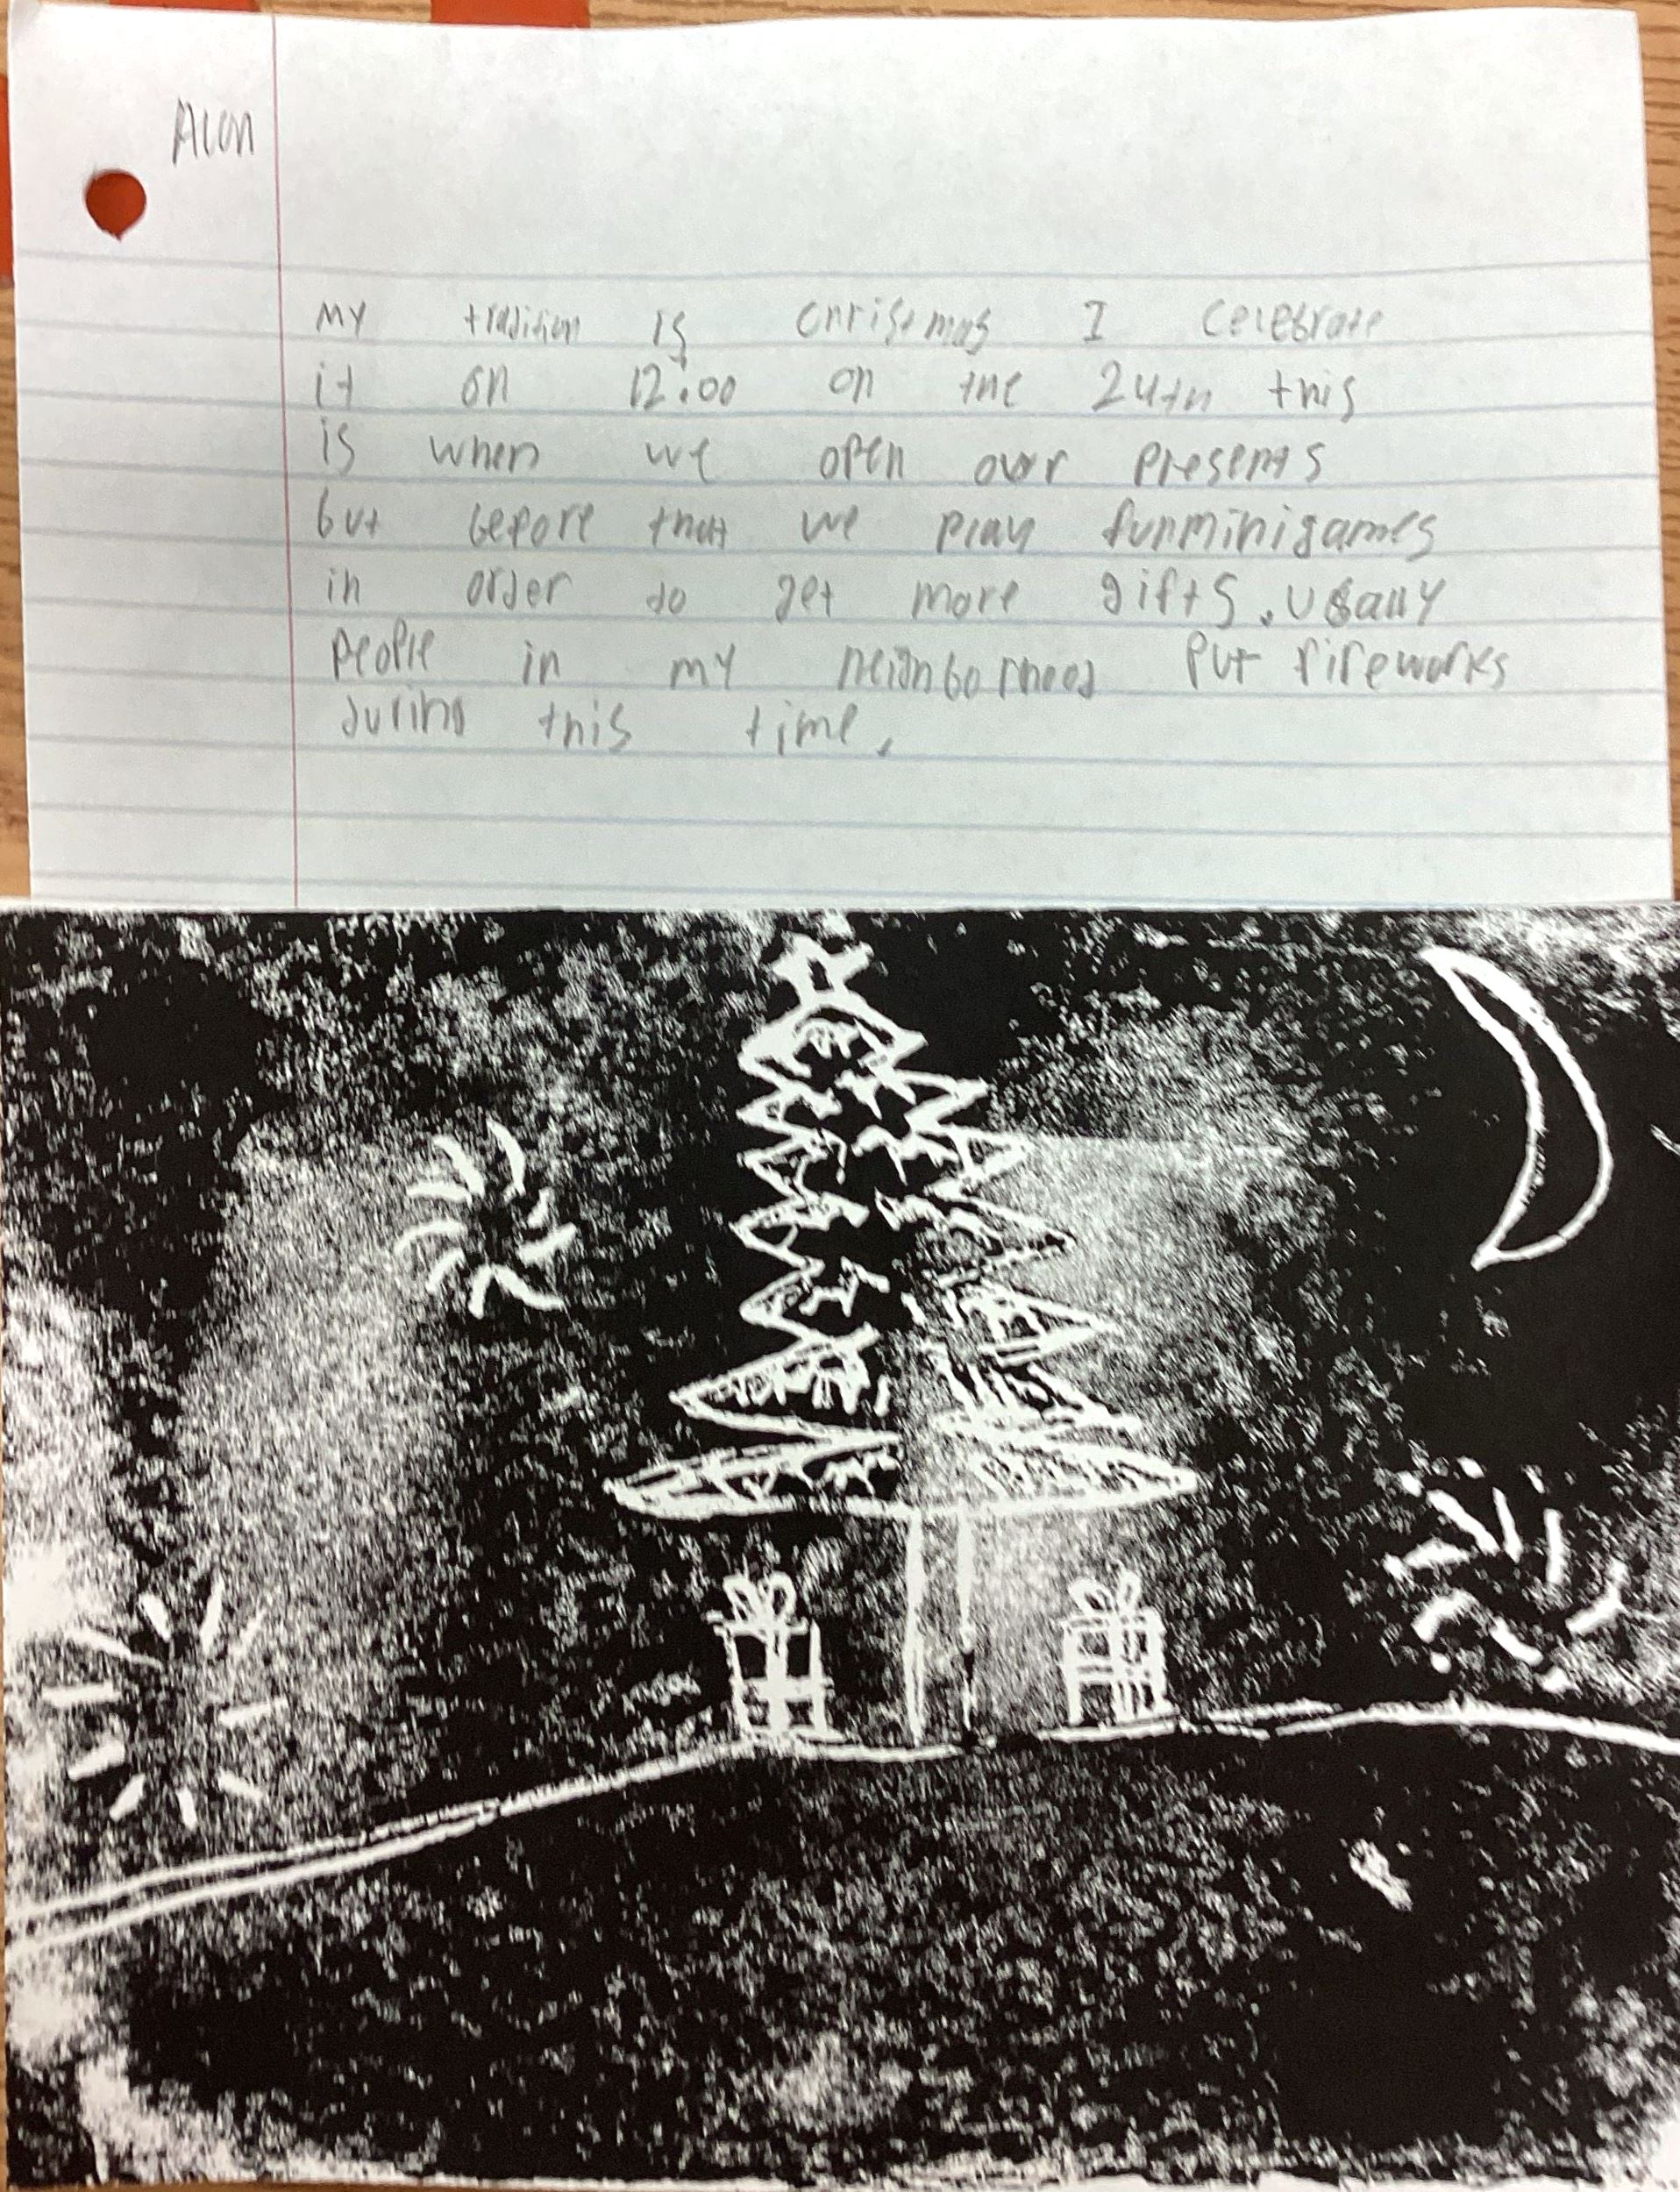 Alan
MY tradition is Christmas I celebrate
it on 12:00 on the 24th this
is when we open our presents
but before that we play funminigames
in order to get more gifts. usally
people in my neighborhood put fireworks
during this time.